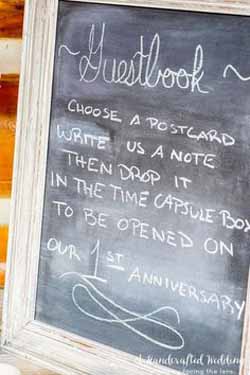 ~ Guestbook ~
CHOOSE A POSTCARD
WRITE US A NOTE
THEN DROP IT
IN THE TIME CAPSULE BOX
TO BE OPENED ON
OUR 1ST ANNIVERSARY
A Handcrafted Wedding
facing the lens.